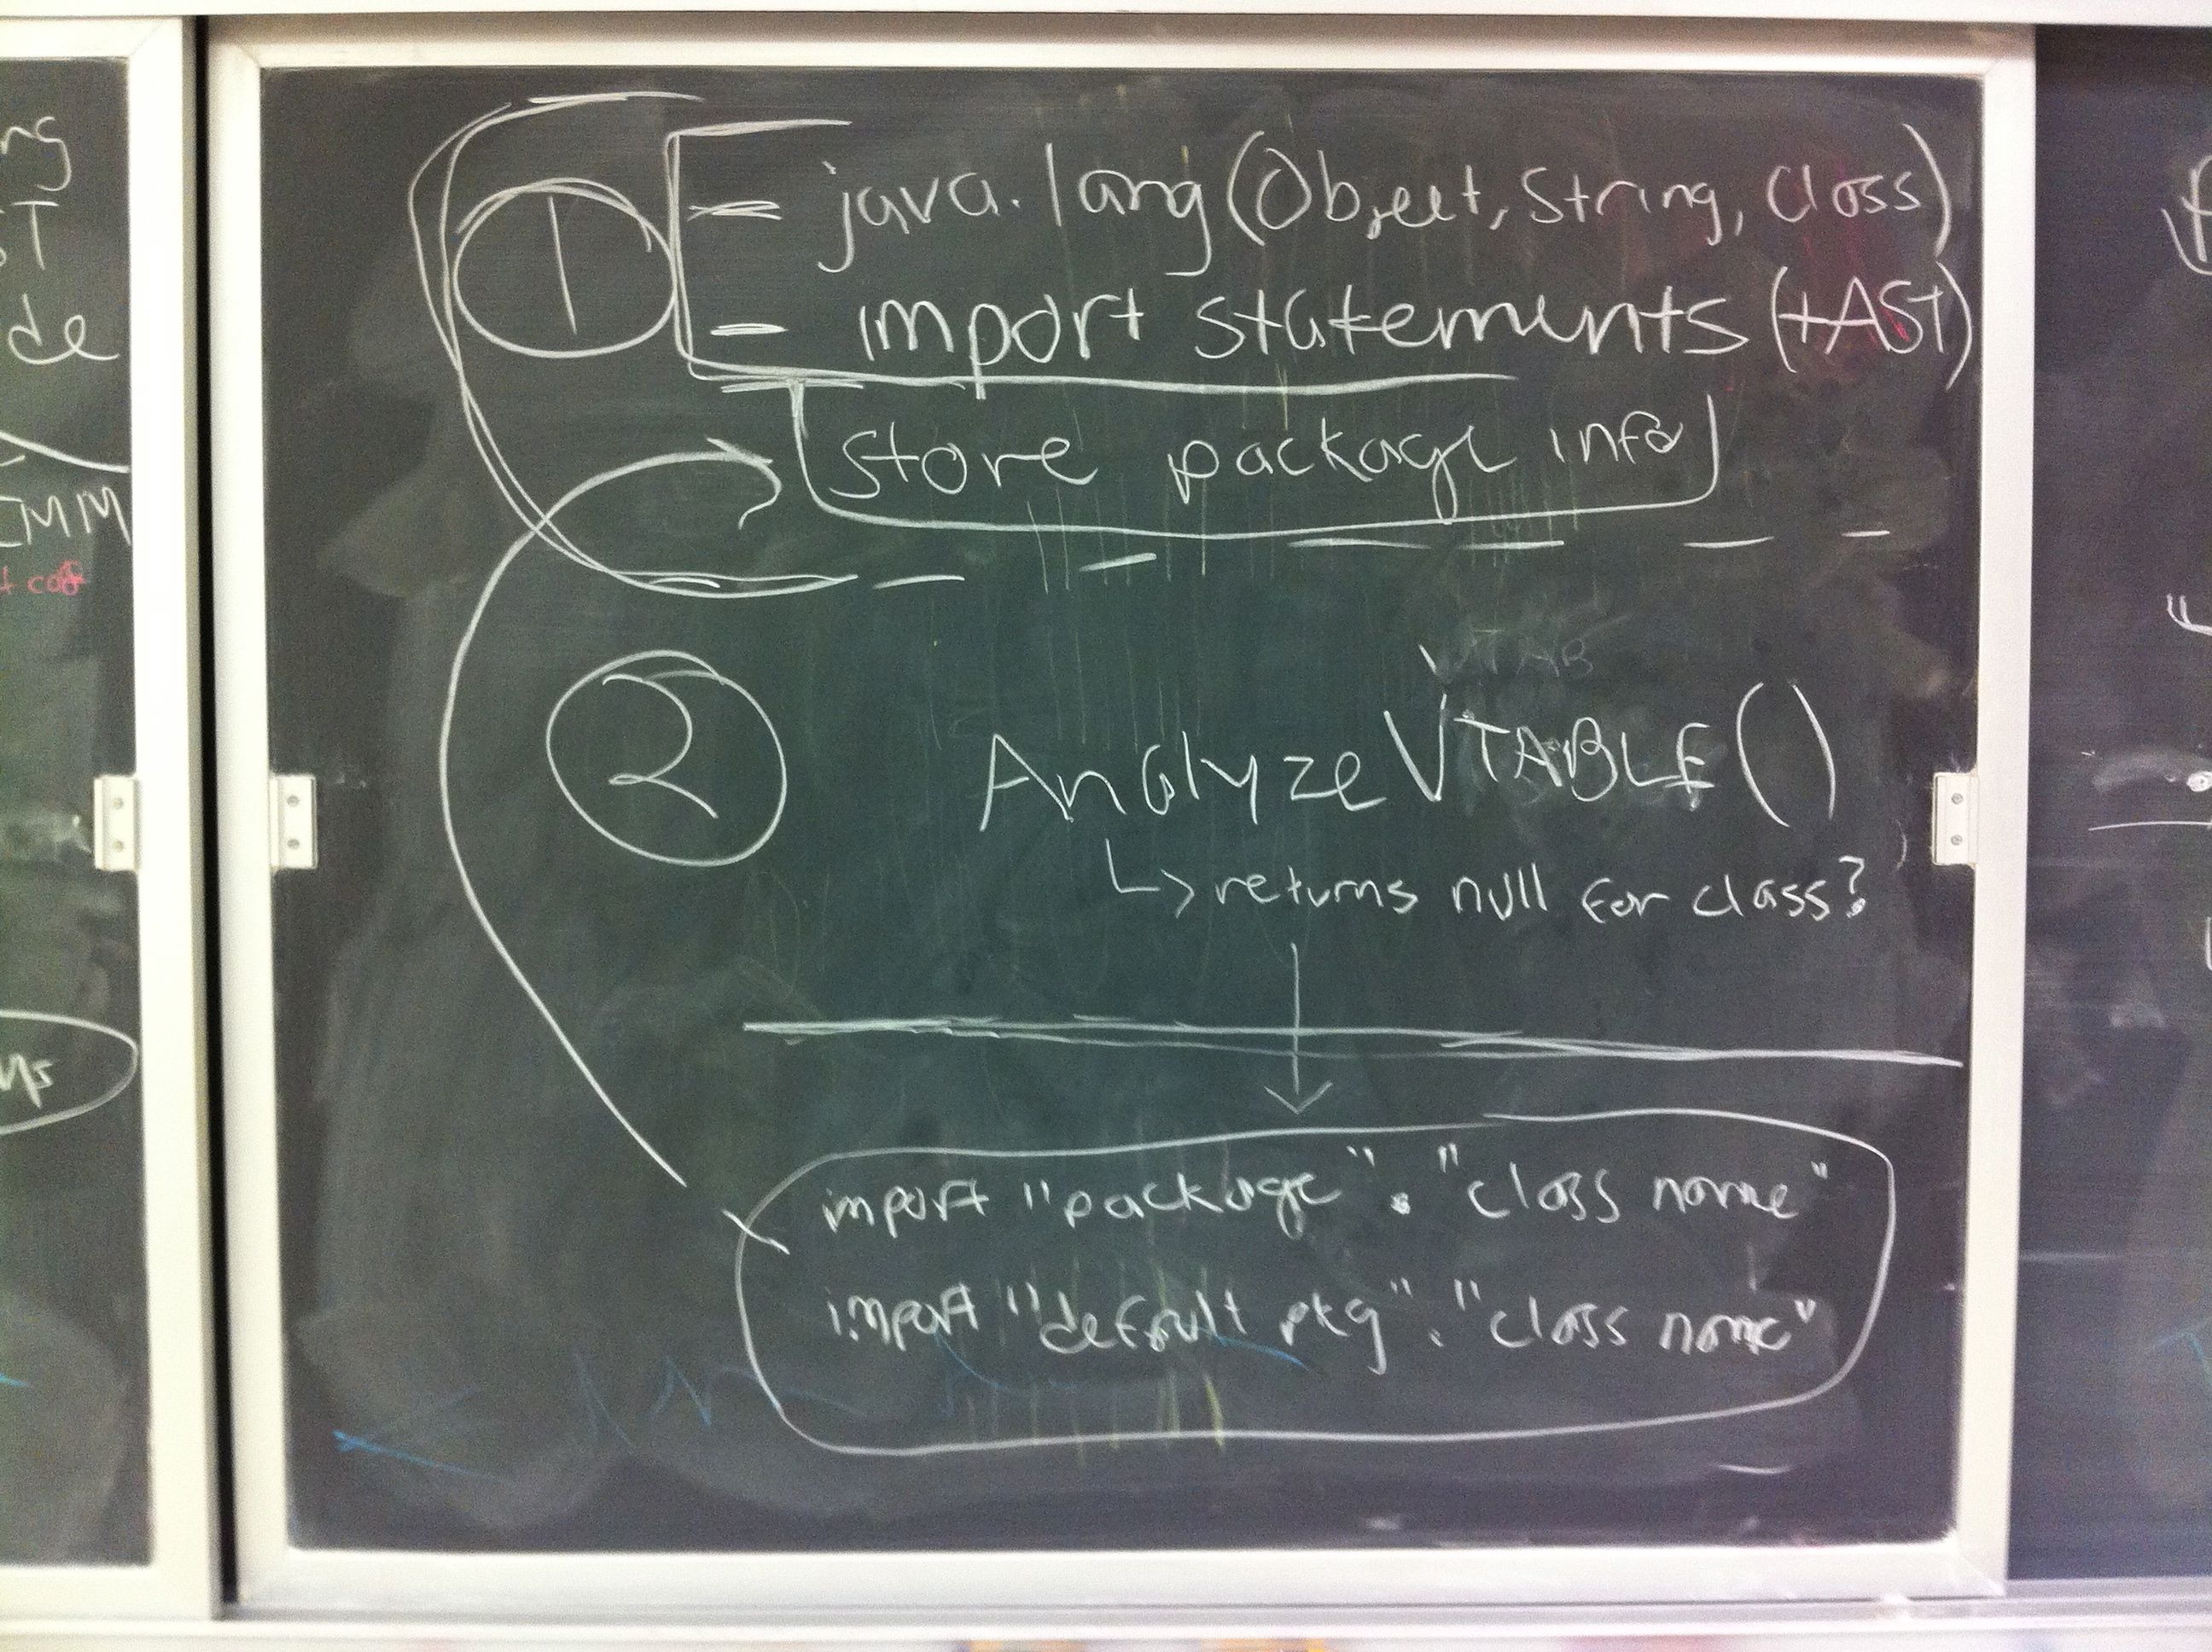 1
- java.lang (Object, String, Class)
- import statements (+AST)
store package info
VTAB
2
Analyze VTABLE ()
↳ returns null for class?
import "package" . "class name"
import "default pkg" . "class name"
de